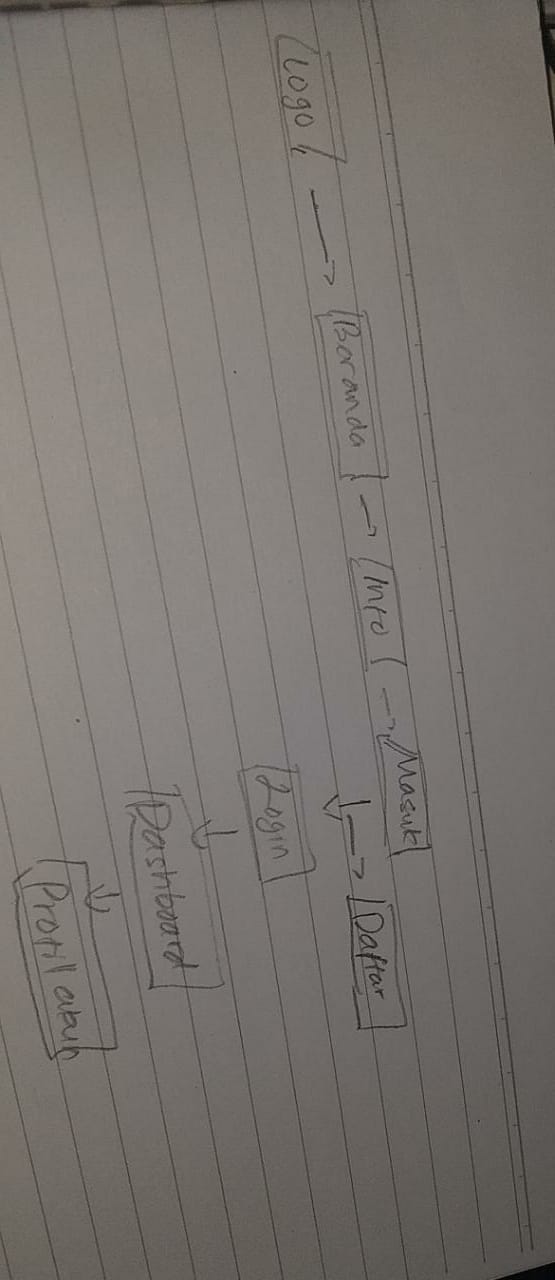 Logo
Beranda
Info
Masuk
Daftar
Login
Dashboard
Profil akun